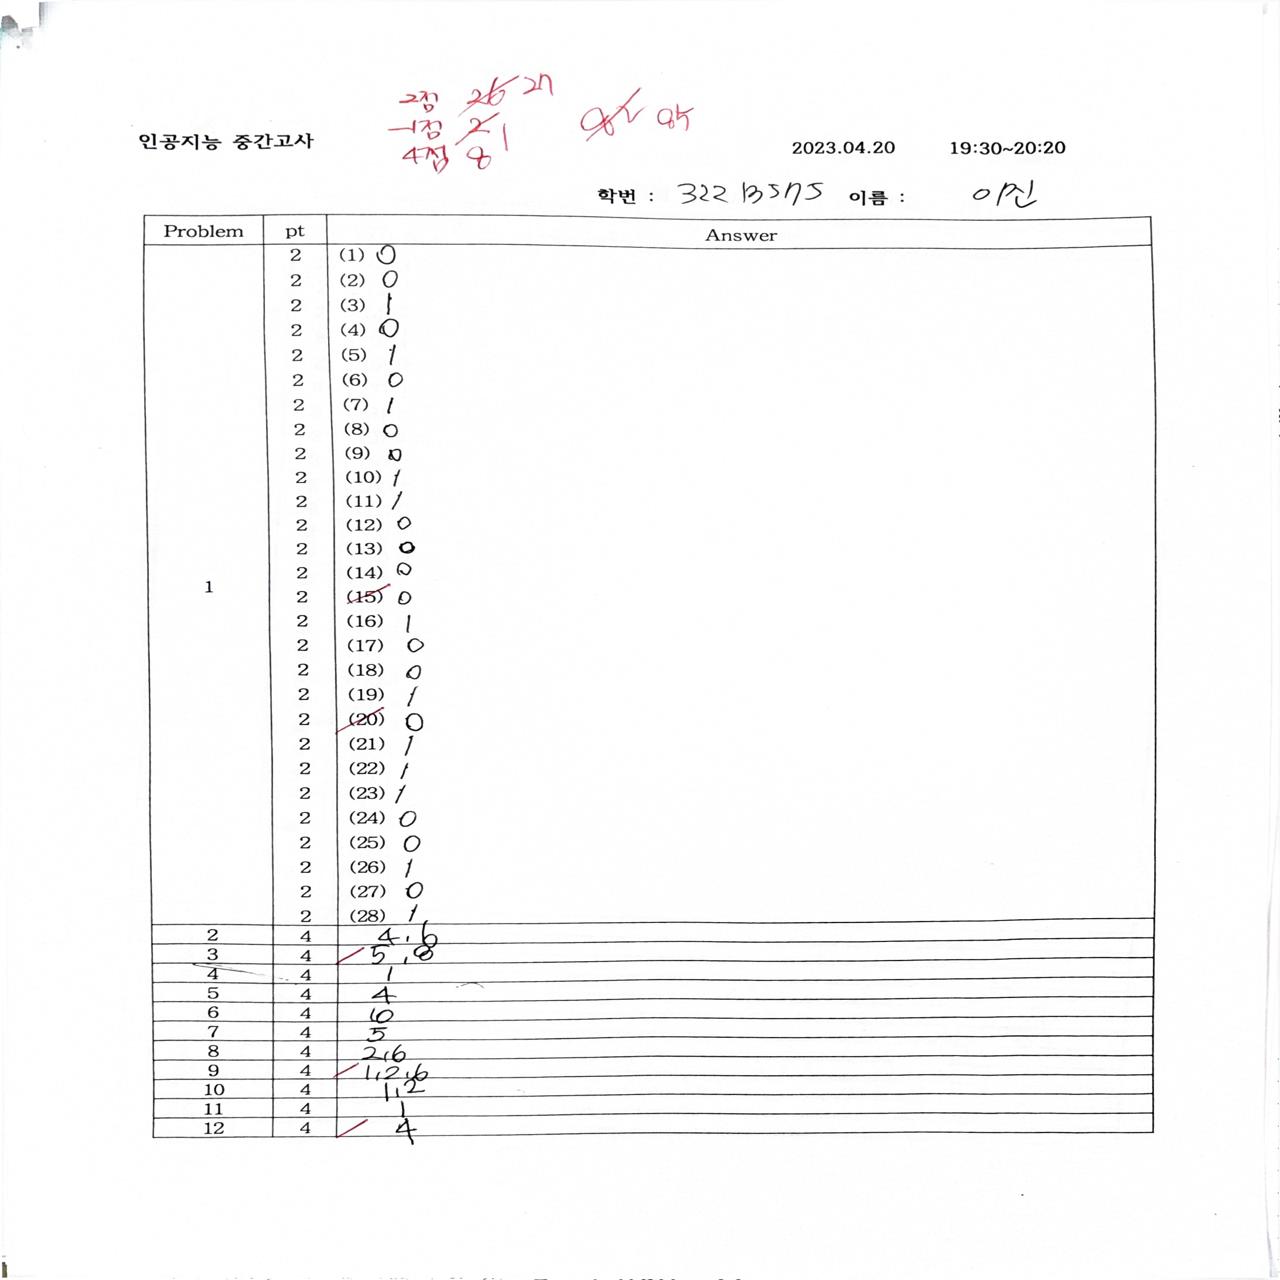 2점 26 27
-1점 2 1
4점 8
82 85
인공지능 중간고사
2023.04.20 19:30~20:20
학번 : 이름 : 이진
Problem pt Answer
1
2 (1) 0
2 (2) 0
2 (3) 1
2 (4) 0
2 (5) 1
2 (6) 0
2 (7) 1
2 (8) 0
2 (9) 0
2 (10) 1
2 (11) 1
2 (12) 0
2 (13) 0
2 (14) 0
2 (15) 0
2 (16) 1
2 (17) 0
2 (18) 0
2 (19) 1
2 (20) 0
2 (21) 1
2 (22) 1
2 (23) 1
2 (24) 0
2 (25) 0
2 (26) 1
2 (27) 0
2 (28) 1
2 4 4, 6
3 4 5, 8
4 4 1
5 4 4
6 4 6
7 4 5
8 4 2,6
9 4 1,2,6
10 4 1,2
11 4 1
12 4 4